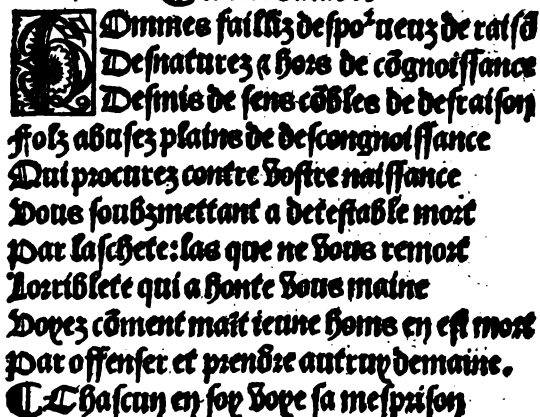 HOmmes failliz despo'ueuz de raisō
Desnaturez ⁊ hors de cōgnoissance
Desmis de sens cōbles de desraison
Folz abusez plains de descongnoissance
Qui procurez contre vostre naissance
Vous soubzmettant a detestable mort
Par laschete: las que ne vous remort
Lorriblete qui a honte vous maine
Voyez cōment maīt ieune homs en est mort
Par offenser et prendre autruy demaine.
¶ Chascun en soy voye sa mesprison